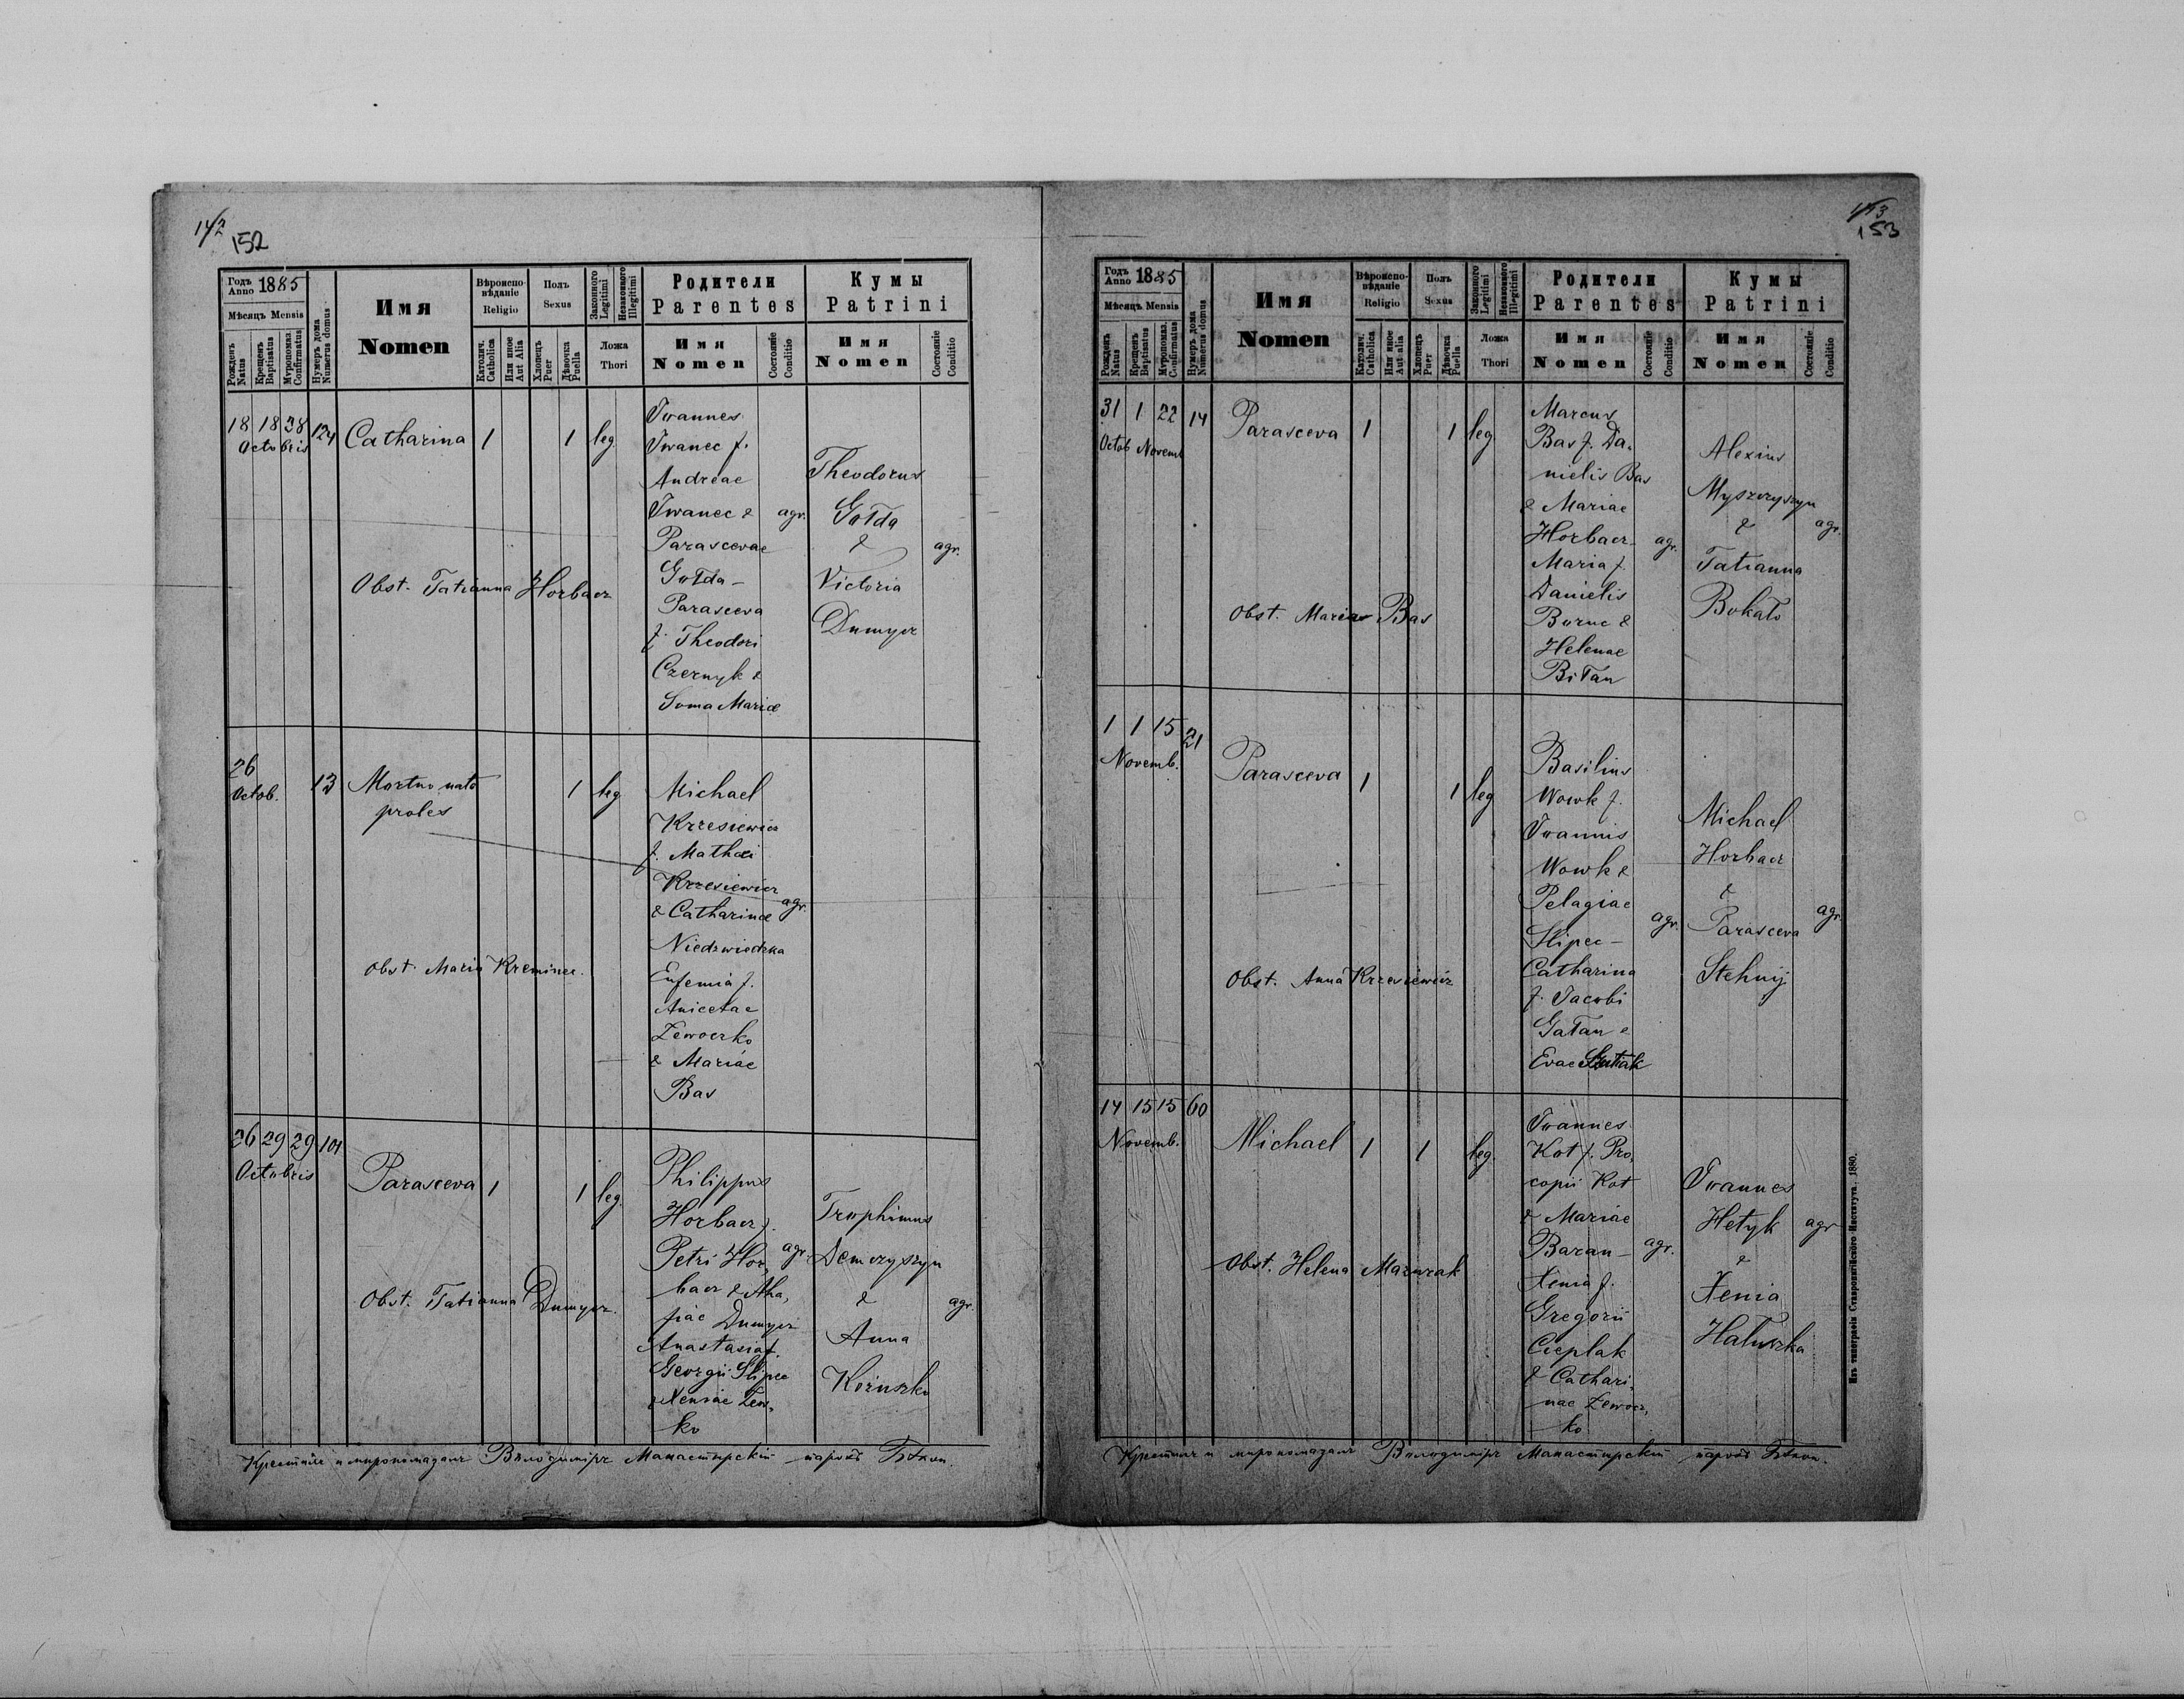 142
152
Годъ Anno 1885
Мѣсяцъ Mensis
Рожденъ Natus
Крещенъ Baptisatus
Мѵропомаз. Confirmatus
Нумеръ дома Numerus domus
Имя
Nomen
Вѣроиспо-
вѣданіе
Religio
Католич. Catholica
Или иное Aut Alia
Полъ
Sexus
Хлопецъ Puer
Дѣвочка Puella
Законного Legitimi
Незаконного Illegitimi
Ложа
Thori
Родители
Parentes
Имя
Nomen
Состояніе Conditio
Кумы
Patrini
Имя
Nomen
Состояніе Conditio
18 18 28 124 Catharina 1 1 leg.
Octobris
Ioannes
Iwanec f.
Andreae
Iwanec & agr.
Parascevae
Gołda –
Parasceva
f. Theodori
Czernyk &
Soma Mariae
Theodorus
Gołda
&
agr.
Victoria
Dumycz
Obst. Tatianna Horbacz
26 13 Mortuo nata 1 leg
Octob.
proles
Michael
Krzesiewicz
f. Mathaei
Krzesiewicz
& Catharinae agr.
Niedzwiedzka
Eufemia f.
Anicetae
Zewoczko
& Mariae
Bas
Obst. Maria Kreminec.
26 29 29 101
Octobris
Parasceva 1 1 leg.
Philippus
Horbacz f.
Petri Hor, agr.
bacz & Aha,
piae Dumycz
Anastasia f.
Georgii Slipec
& Xeniae Zew,
ko
Trophimus
Demczyszyn
&
agr.
Anna
Kożuszko
Obst. Tatianna Dumycz.
Крестилъ и миропомазалъ Володимiръ Манастырскiй парохъ
143
153
Годъ Anno 1885
Мѣсяцъ Mensis
Рожденъ Natus
Крещенъ Baptisatus
Мѵропомаз. Confirmatus
Нумеръ дома Numerus domus
Имя
Nomen
Вѣроиспо-
вѣданіе
Religio
Католич. Catholica
Или иное Aut alia
Полъ
Sexus
Хлопецъ Puer
Дѣвочка Puella
Законного Legitimi
Незаконного Illegitimi
Ложа
Thori
Родители
Parentes
Имя
Nomen
Состояніе Conditio
Кумы
Patrini
Имя
Nomen
Состояніе Conditio
31 1 22 14 Parasceva 1 1 leg.
Octob Novemb
Marcus
Bas f. Da,
nielis Bas
& Mariae
Horbacz – agr.
Maria f.
Danielis
Burne &
Helenae
Biłan
Alexius
Myszczyszyn
&
agr.
Tatianna
Bokało
Obst. Maria Bas
1 1 15 21
Novemb.
Parasceva 1 1 leg
Basilius
Wowk f.
Ioannis
Wowk &
Pelagiae
Slipec – agr.
Catharina
f. Jacobi
Gałan &
Evae
Michael
Horbacz
&
Parasceva agr.
Stehnij
Obst. Anna Krzesiewicz
14 15 15 60
Novemb.
Michael 1 1 leg.
Ioannes
Kot f. Pro,
copii Kot
& Mariae
Baran – agr.
Xenia f.
Gregorii
Cieplak
& Cathari,
nae Zewocz,
ko
Ioannes
Hetyk agr
&
Xenia
Hałuszka
Obst. Helena Mazurak
Крестилъ и миропомазалъ Володимiръ Манастырскiй парохъ
Изъ типографіи Ставропигійского Института, 1880.